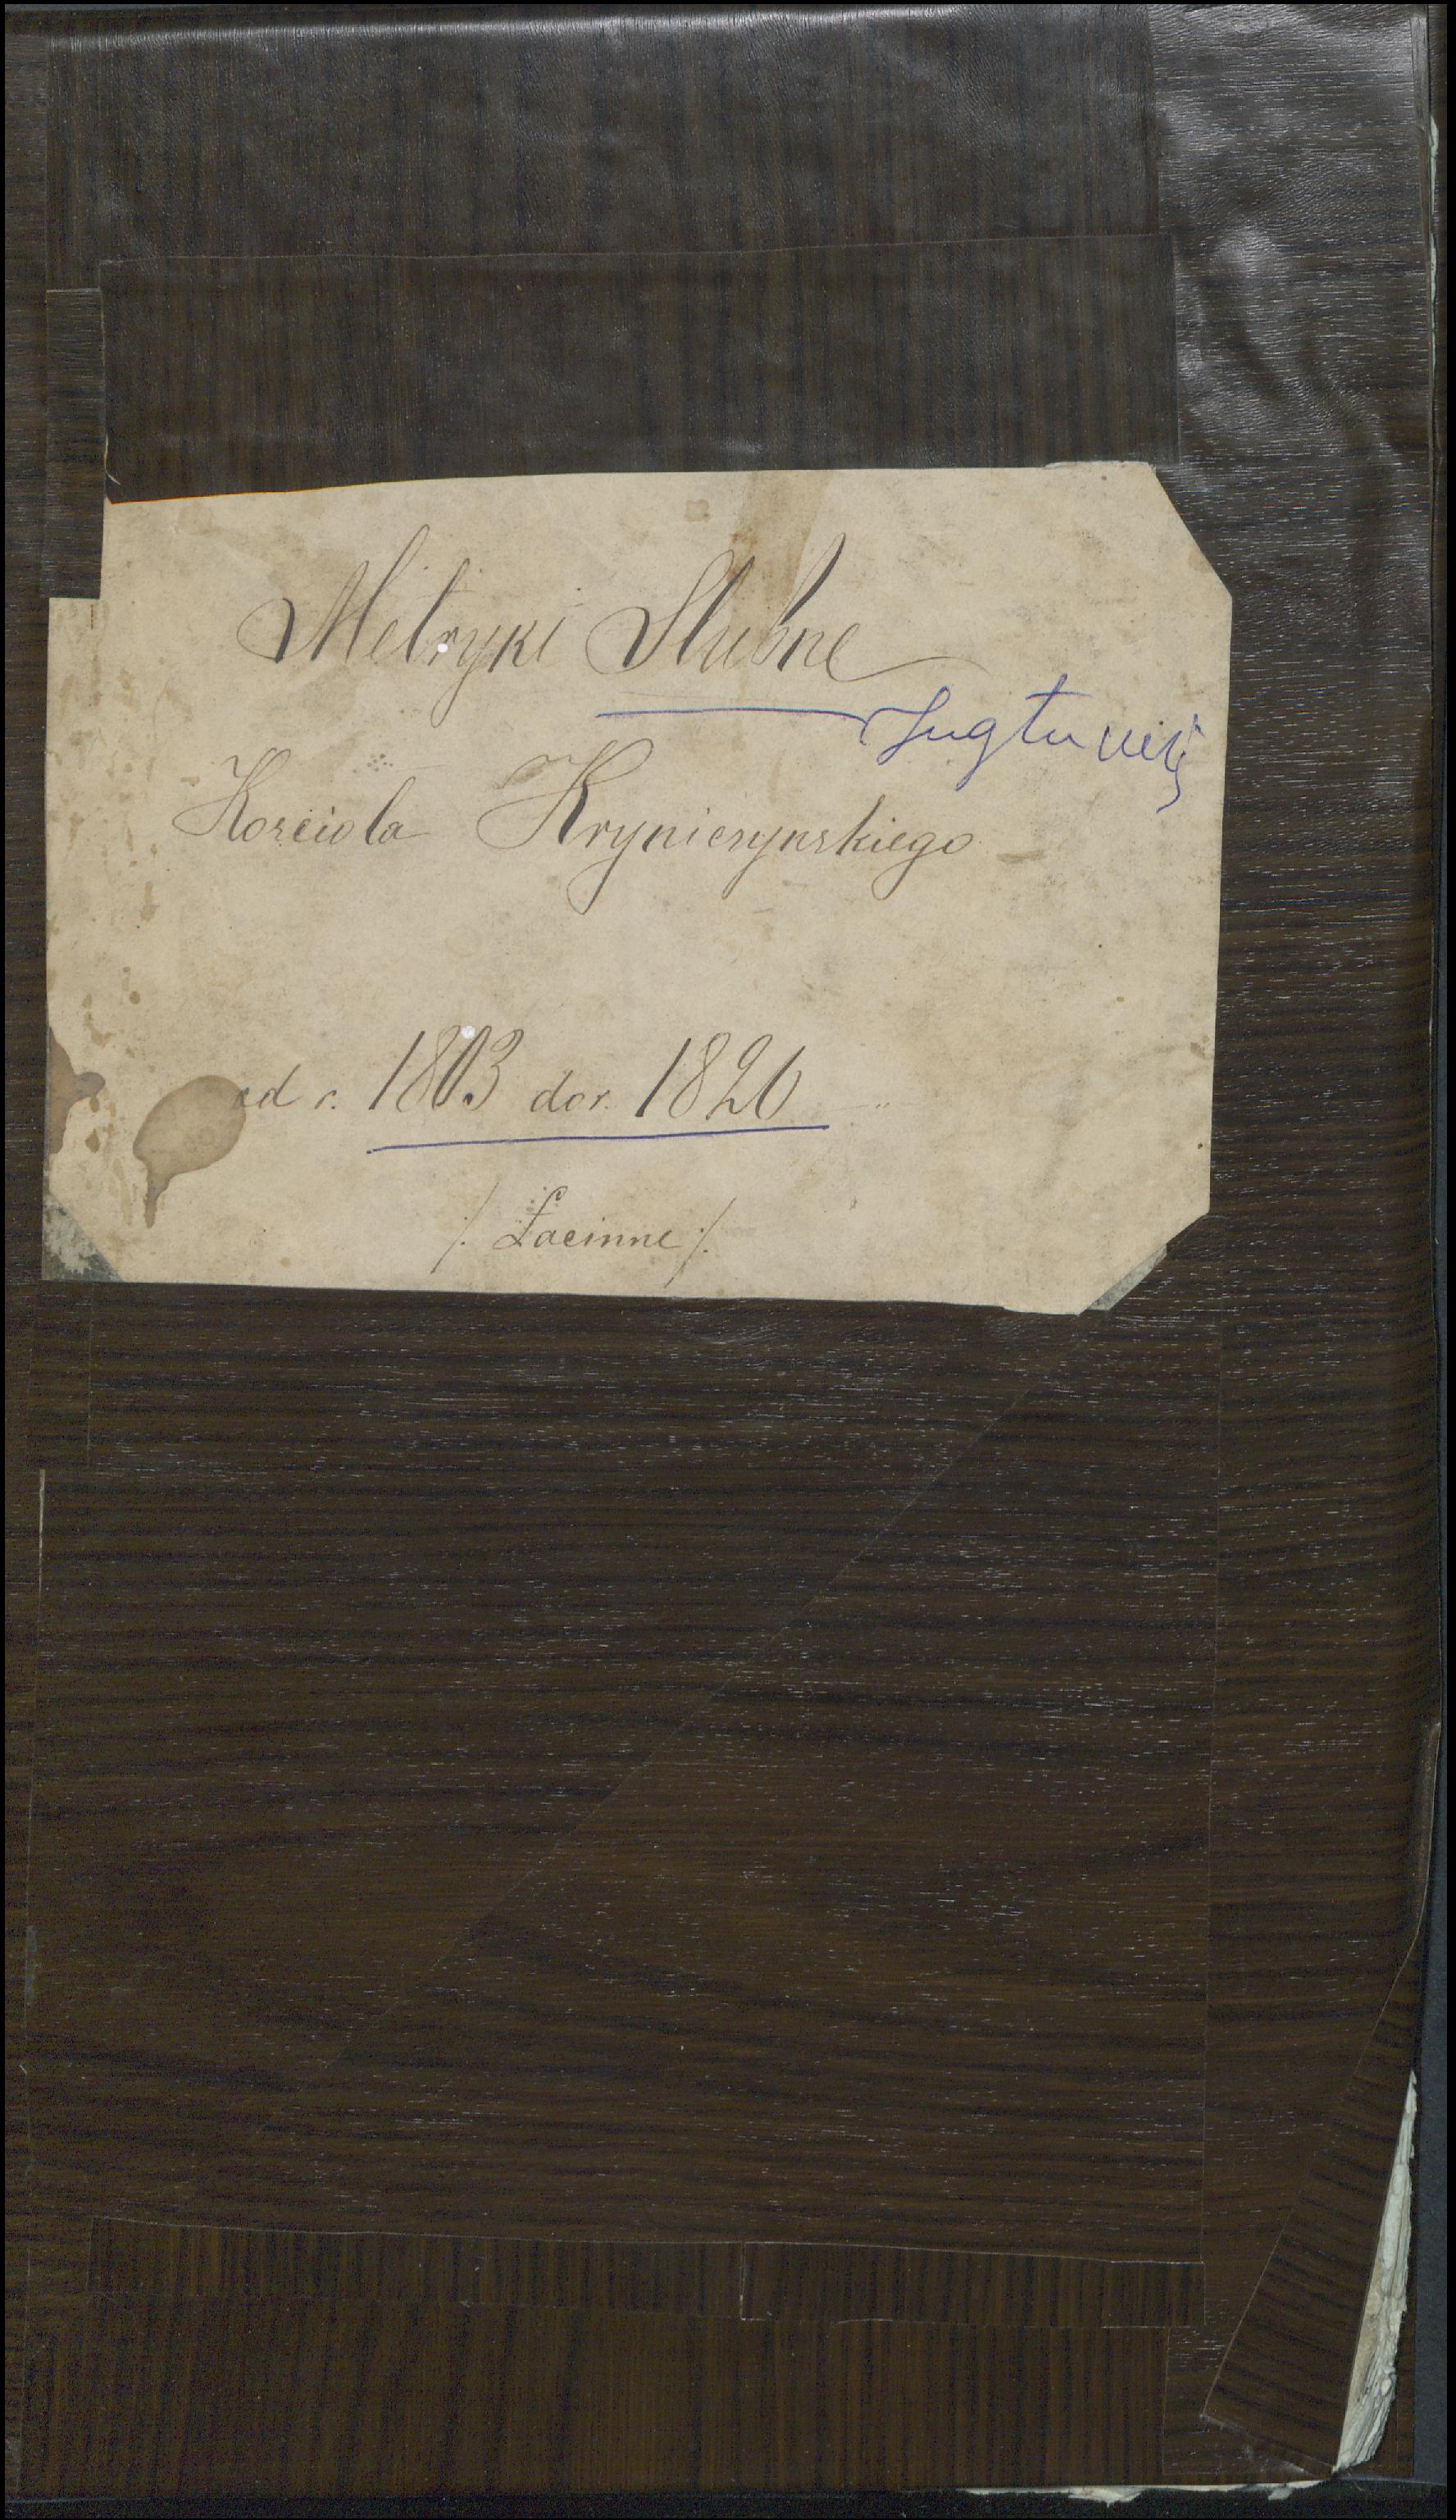 Metryki Slubne
Jugtuvių
Kosciola Krynicynskiego
od r. 1803 do r. 1826
/. Łacinne ./